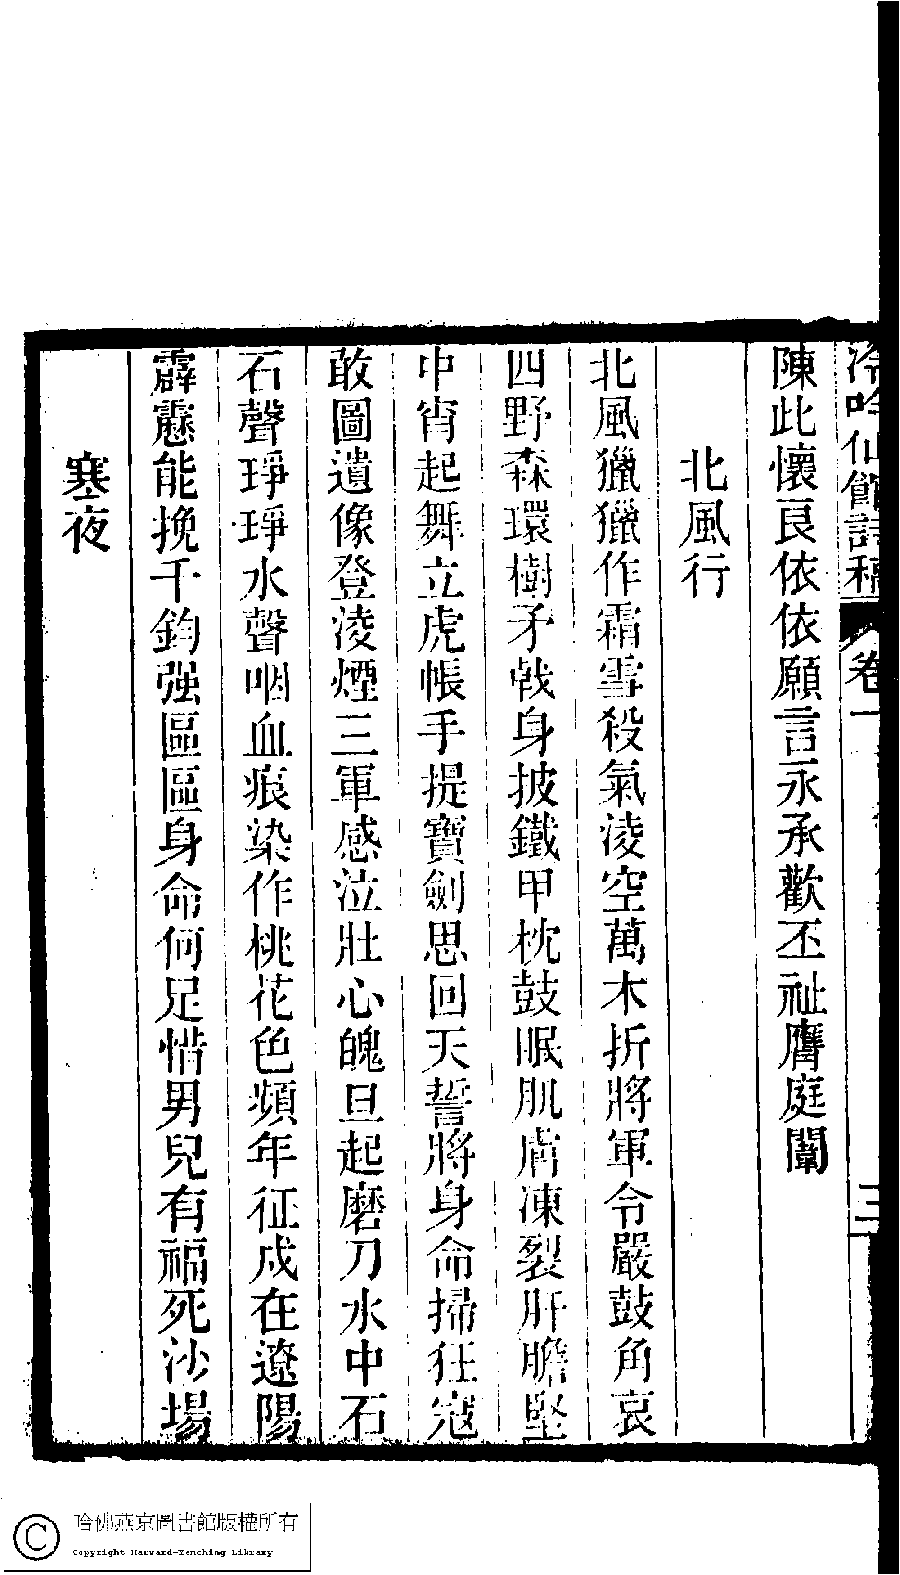 冷吟仙館詩稿 卷一 三
陳此懷良依依願言永承歡丕祉膺庭闈
北風行
北風獵獵作霜雪殺氣淩空萬木折將軍令嚴鼓角哀
四野森環樹矛戟身披鐵甲枕鼓眠肌膚凍裂肝膽堅
中宵起舞立虎帳手提寶劍思回天誓將身命掃狂寇
敢圖遺像登淩煙三軍感泣壯心魄旦起磨刀水中石
石聲琤琤水聲咽血痕染作桃花色頻年征戍在遼陽
霹靂能挽千鈞强區區身命何足惜男兒有福死沙場
寒夜
哈佛燕京圖書館版權所有
Copyright Harvard-Yenching Library